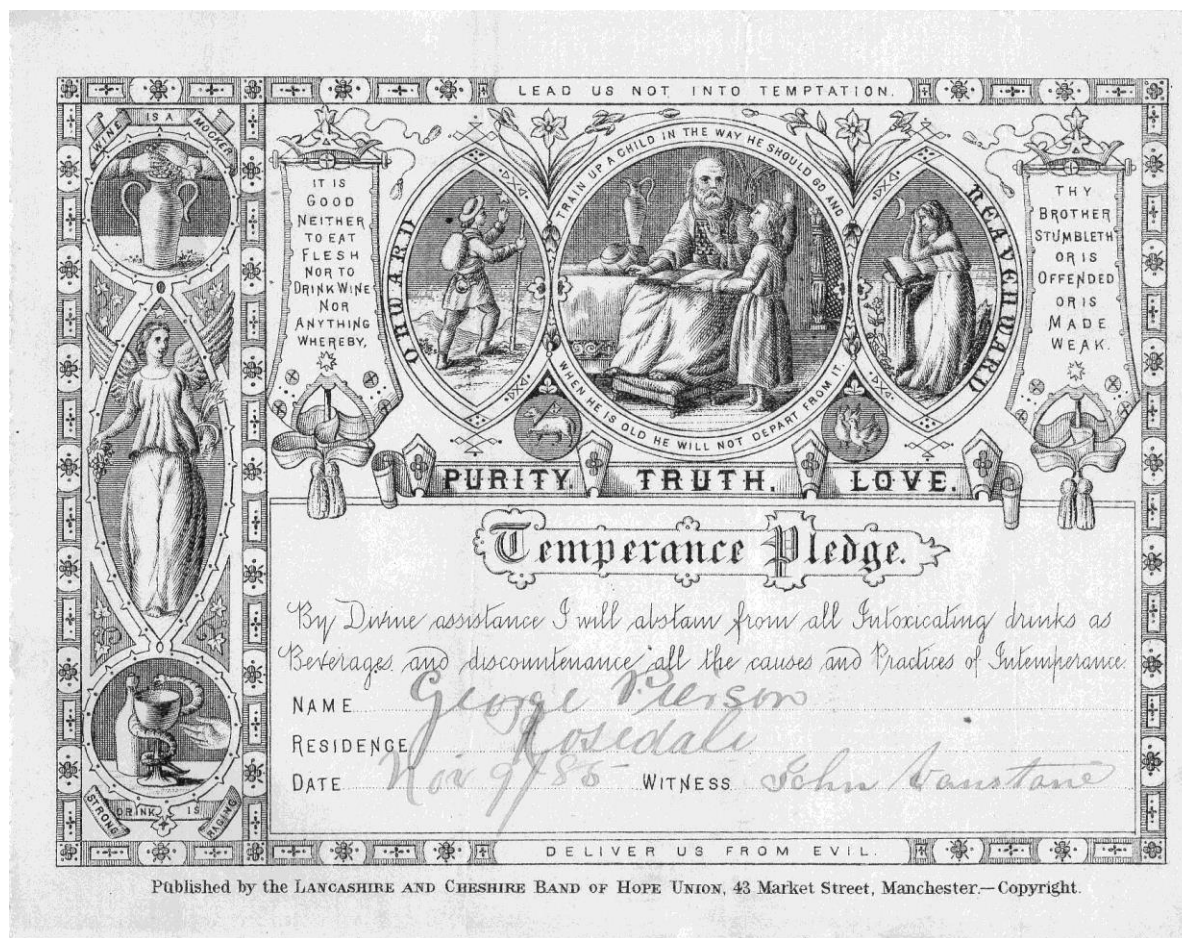 LEAD US NOT INTO TEMPTATION.
WINE IS A MOCKER
IT IS
GOOD
NEITHER
TO EAT
FLESH
NOR TO
DRINK WINE
NOR
ANYTHING
WHEREBY,
ONWARD
TRAIN UP A CHILD IN THE WAY HE SHOULD GO AND
WHEN HE IS OLD HE WILL NOT DEPART FROM IT.
HEAVENWARD
THY
BROTHER
STUMBLETH
OR IS
OFFENDED
OR IS
MADE
WEAK.
PURITY. TRUTH. LOVE.
Temperance Pledge.
By Divine assistance I will abstain from all Intoxicating drinks as
Beverages and discountenance all the causes and Practices of Intemperance.
NAME George Pierson
RESIDENCE Rosedale
DATE Nov 9/85 WITNESS John Vanstone
STRONG DRINK IS RAGING
DELIVER US FROM EVIL.
Published by the LANCASHIRE AND CHESHIRE BAND OF HOPE UNION, 43 Market Street, Manchester.—Copyright.